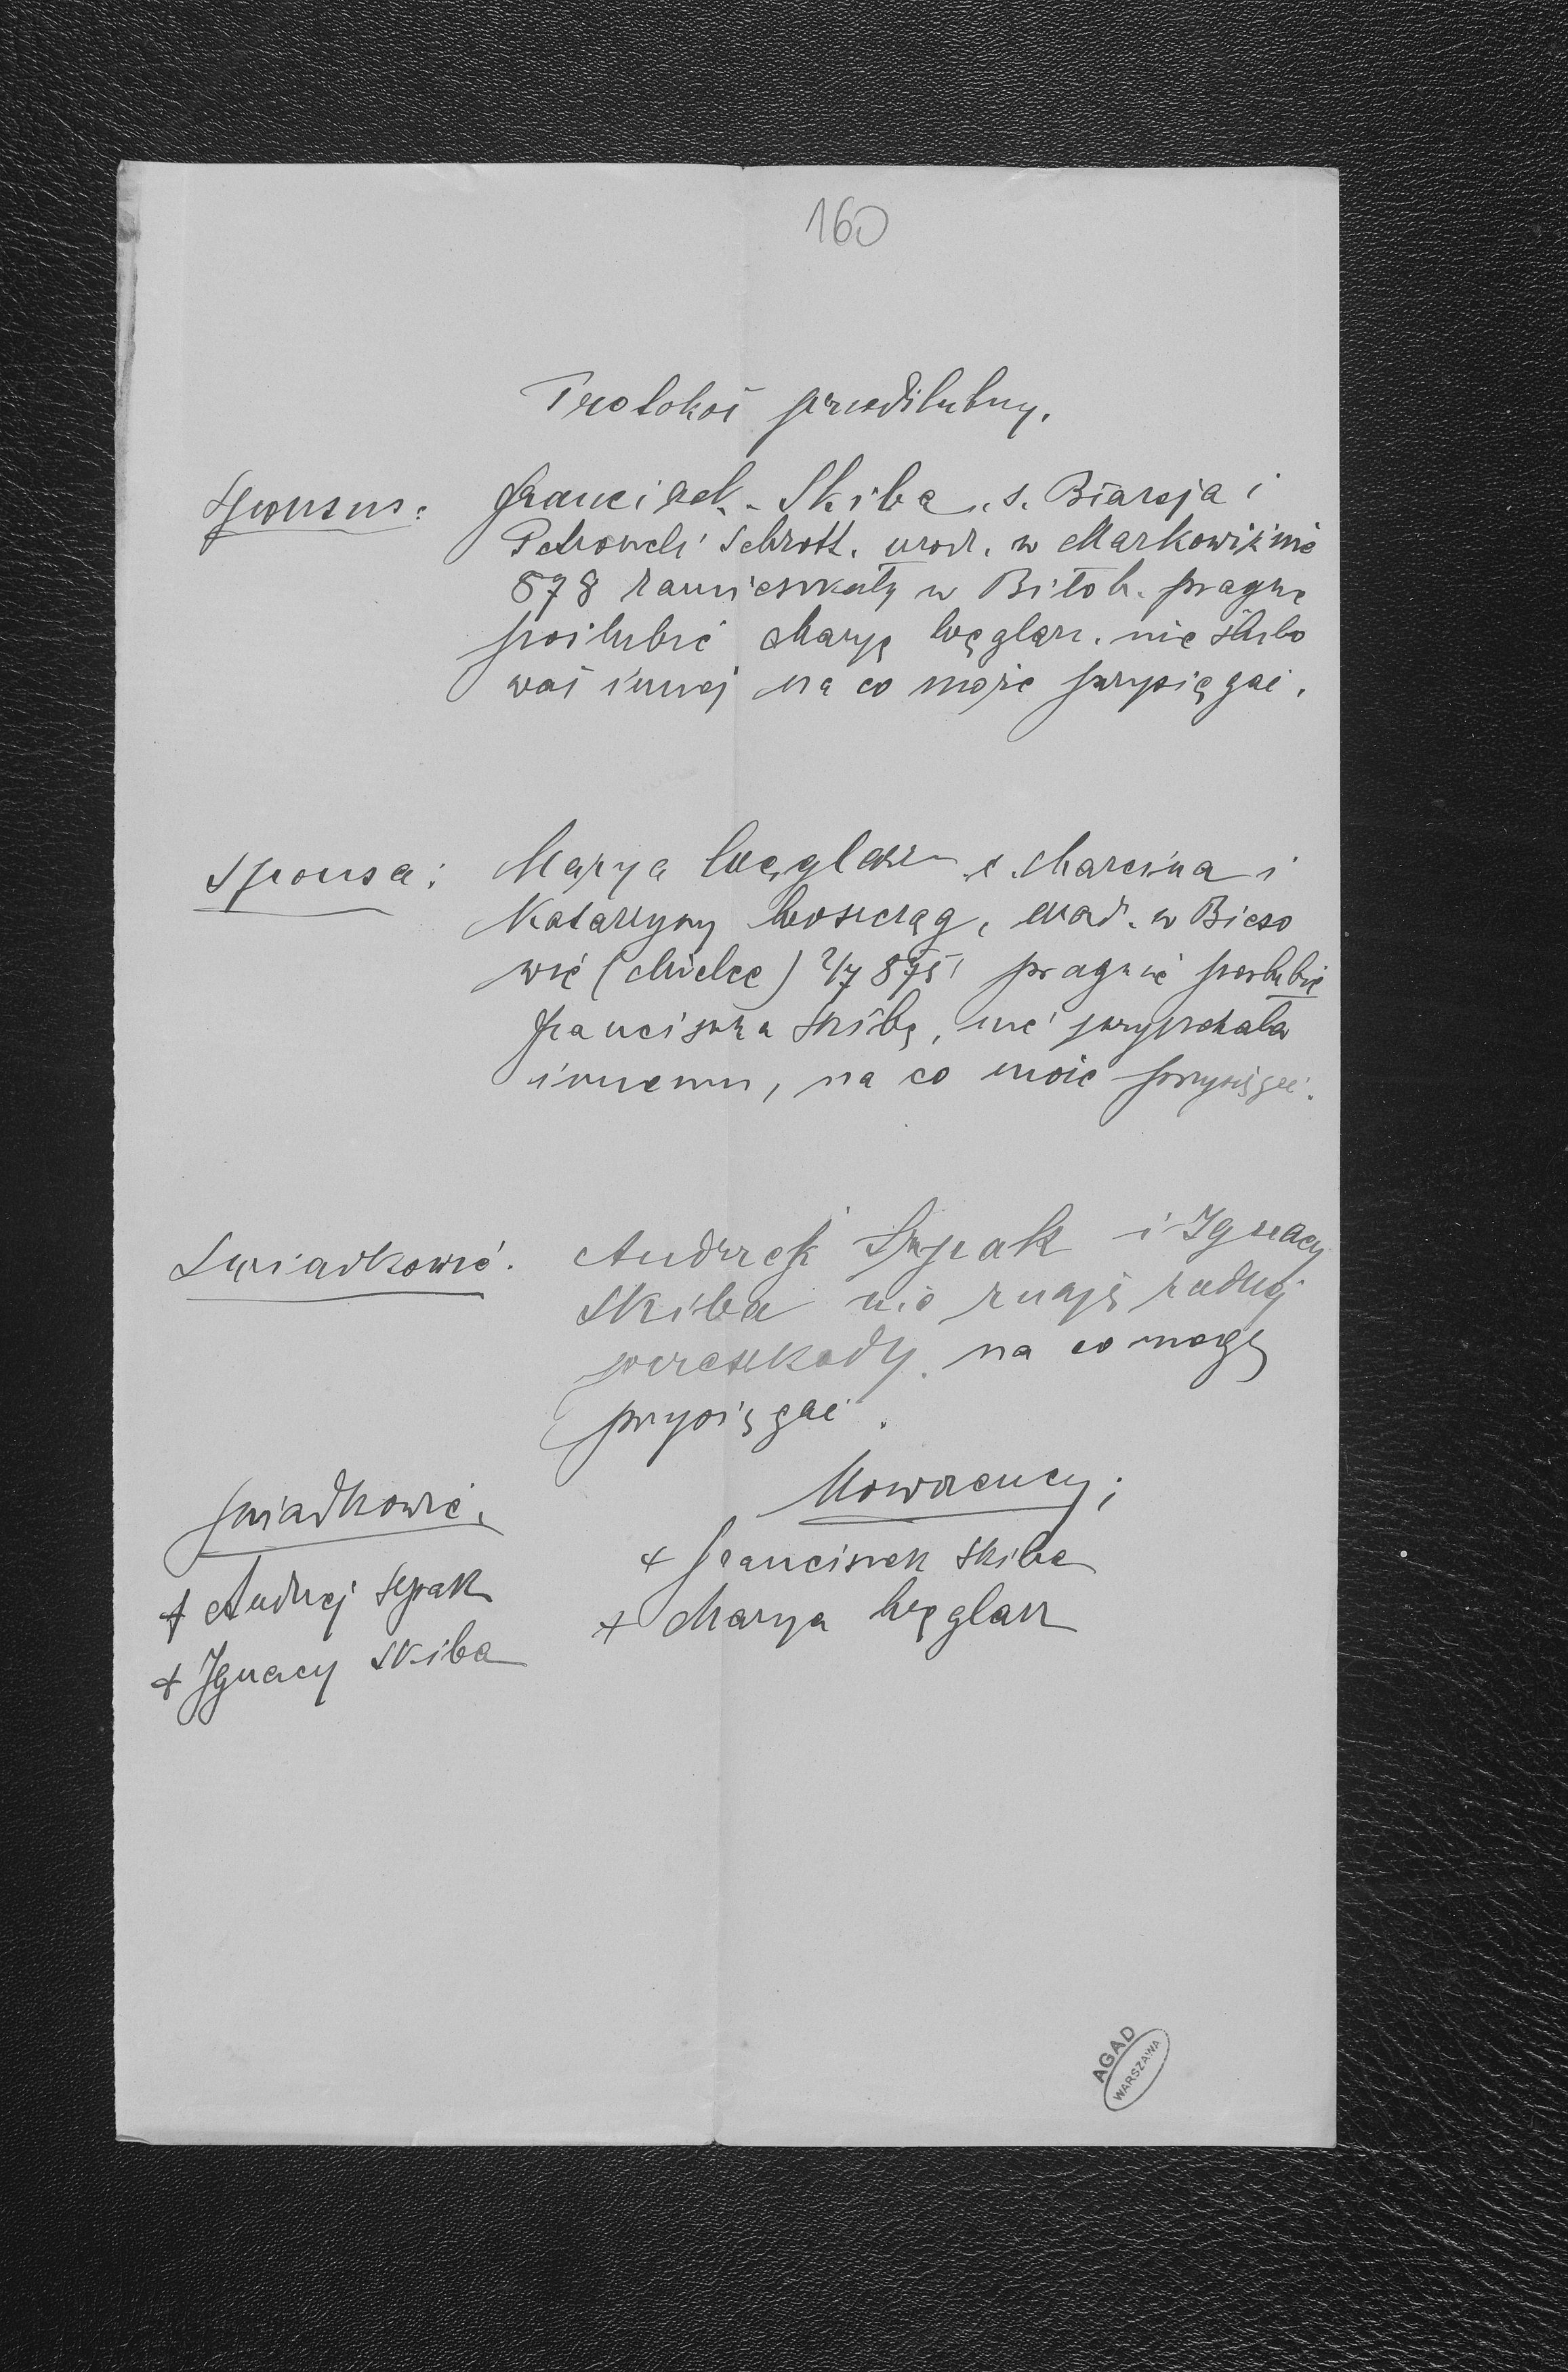 160
Protokół przedślubny.
Sponsus: Franciszek Skiba, s. Błażeja i
Petroneli Schrott. urodz. w Markowiźnie
878 zamieszkały w Bitoli. pragnie
poślubić Maryę Węglarz. nie ślubo
wał innej na co może przysięgać.
Sponsa: Marya Węglarz c. Marcina i
Katarzyny urodz. w Bieso
wie (Mielec) 2/7 875 pragnie poślubić
Franciszka Skibę, nie przyrzekała
innemu, na co może przysięgać.
Świadkowie. Andrzej Szpak i Ignacy
Skiba nie znają żadnej
przeszkody. na co mogą
przysięgać.
Świadkowie. Nowożeńcy;
+ Andrzej Szpak + Franciszek Skiba
+ Ignacy Skiba + Marya Węglarz
AGAD
WARSZAWA